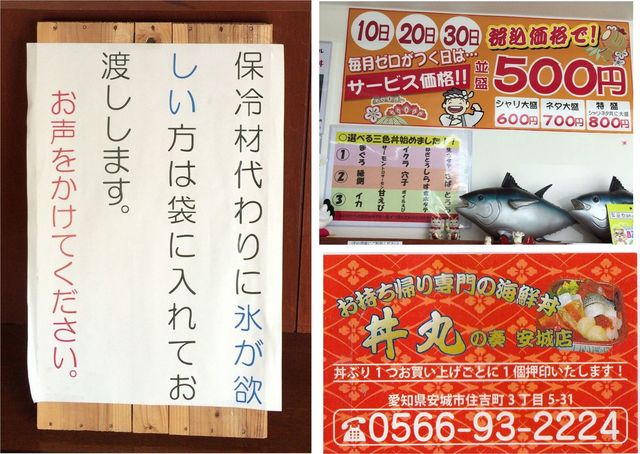 保冷材代わりに氷が欲
しい方は袋に入れてお
渡しします。
お声をかけてください。
10日 20日 30日 税込価格で!
毎月ゼロがつく日は…
サービス価格!!
並盛 500円
シャリ大盛 600円
ネタ大盛 700円
特盛 800円
○選べる三色丼始めました!!
① まぐろ サーモン イクラ ねぎとろ
② 穴子 しらす
③ イカ 甘えび
お持ち帰り専門の海鮮丼
丼丸の奏 安城店
丼ぶり1つお買い上げごとに1個押印いたします!
愛知県安城市住吉町3丁目5-31
0566-93-2224